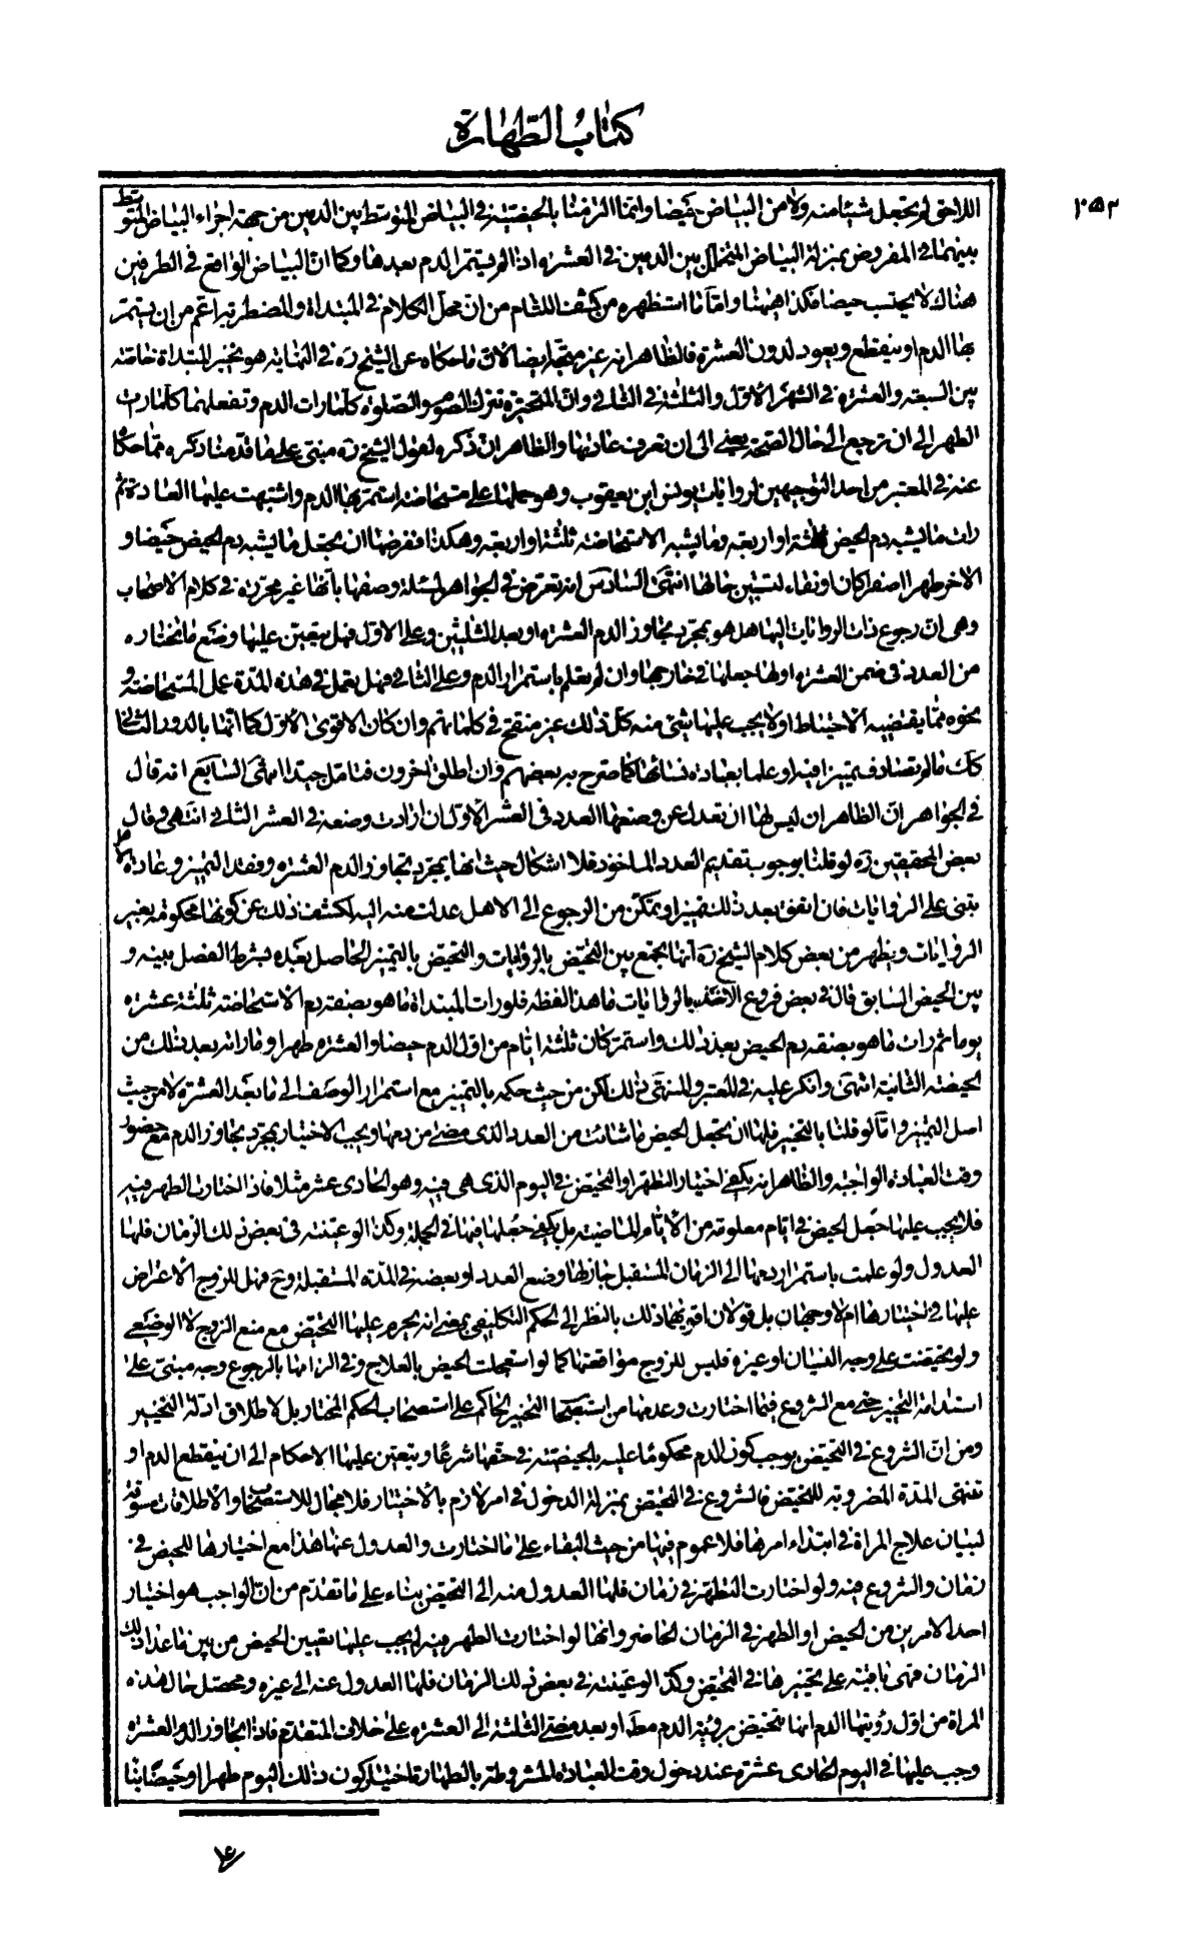 كتاب الطهارة
٢٥٢
اللاحق لم يجعل شيئا منه ولا من البياض حيضا وانما التزمنا بالحيضية في البياض المتوسط بين الدمين من جهة اجزاء البياض المتوسط
بينهما في المفروض بمنزلة البياض المتخلل بين الدمين في العشرة اذا لم يستمر الدم بعدها وكما ان البياض الواقع في الطرفين
هناك لا يحتسب حيضا فكذا هيهنا واما ما استظهره من كشف اللثام من ان محل الكلام في المبتداة والمضطربة اعم من ان يستمر
بها الدم او ينقطع ويعود لدون العشرة فالظاهر انه غير متجه ايضا لان ما حكاه عن الشيخ ره في النهاية هو تخيير المبتداة خاصة
بين السبعة والعشرة في الشهر الاول والثلثة في الثاني وان المتحيرة تترك الصوم والصلوة كلما رات الدم وتفعلهما كلما رات
الطهر الى ان ترجع الى حال الصحة يعني الى ان تعرف عادتها والظاهر ان ذكره لقول الشيخ ره مبتني على ما قدمنا ذكره مما حكاه
عنه في المعتبر من احد التوجيهين لروايات يونس ابن يعقوب وهو حملها على مستحاضة استمر بها الدم واشتبهت عليها العادة ثم
رات ما يشبه دم الحيض ثلثة او اربعة وما يشبه الاستحاضة ثلثة او اربعة وهكذا ففرضها ان يجعل ما يشبه دم الحيض حيضا و
الاخر طهرا صفرا كان او نقاء لتستبين حالها انتهى السادس انه تعرض في الجواهر لمسئلة وصفها بانها غير محررة في كلام الاصحاب
وهي ان رجوع ذات الروايات اليها هل هو بمجرد تجاوز الدم العشرة او بعد الثلثين وعلى الاول فهل يتعين عليها وضع ما تختاره
من العدد في ضمن العشرة او لها جعلها في خارجها وان لم يعلم باستمرار الدم وعلى الثاني فهل يعمل في هذه المدة عمل المستحاضة و
نحوه مما يقتضيه الاحتياط او لا يجب عليها شئ منه كل ذلك غير منقح في كلماتهم وان كان الاقوى الاول كما انها بالدور الثاني
كك ما لم تصادف تمييزا فيه او علما بعادة نسائها كما صرح به بعضهم وان اطلق اخرون فتامل جيدا انتهى السابع انه قال
في الجواهر ان الظاهر ان ليس لها ان تعدل عن وضعها العدد في العشر الاول ان ارادت وضعه في العشر الثاني انتهى وقال
بعض المحققين ره لو قلنا بوجوب تقديم العدد الماخوذ فلا اشكال حيث انها بمجرد تجاوز الدم العشرة وفقد التميز وعادة الاهل
تبني على الروايات فان اتفق بعد ذلك تمييز او تمكن من الرجوع الى الاهل عدلت منه اليه لكشف ذلك عن كونها محكومة بغير
الروايات ويظهر من بعض كلام الشيخ ره انها تجمع بين التحيض بالروايات والتحيض بالتميز الحاصل بعده بشرط الفصل بينه و
بين الحيض السابق قال في بعض فروع الاخذ بالروايات ما هذا لفظه فلو رات المبتداة ما هو بصفة دم الاستحاضة ثلثة عشرة
يوما ثم رات ما هو بصفة دم الحيض بعد ذلك واستمر كان ثلثة ايام من اول الدم حيضا والعشرة طهرا وما راته بعد ذلك من
الحيضة الثانية انتهى وانكر عليه في المعتبر والمنتهى ذلك لكن من حيث حكمه بالتميز مع استمرار الوصف الى ما بعد العشرة لا من حيث
اصل التميز واما لو قلنا بالتخيير فلها ان تجعل الحيض ما شائت من العدد الذي مضى من دمها ويجب الاختيار بمجرد تجاوز الدم مع حضور
وقت العبادة الواجبة والظاهر انه يكفي اختيار التطهر او التحيض في اليوم الذي هي فيه وهو الحادي عشر مثلا فاذا اختارت الطهر فيه
فلا يجب عليها جعل الحيض في ايام معلومة من الايام الماضية بل يكفي جعلها فيها في الجملة وكذا لو عينته في بعض ذلك الزمان فلها
العدول ولو علمت باستمرار دمها الى الزمان المستقبل جاز لها وضع العدد او بعضه في المدة المستقبلة وح فهل للزوج الاعتراض
عليها في اختيارها ام لا وجهان بل قولان اقويهما ذلك بالنظر الى الحكم التكليفي بمعنى انه يحرم عليها التحيض مع منع الزوج لا الوضعي
ولو تحيضت على وجه النسيان او غيره فليس للزوج مواقعتها كما لو استعجلت الحيض بالعلاج وفي الزامها بالرجوع وجه مبتني على
استدامة التخيير حتى مع الشروع فيما اختارت وعدمها من استصحاب التخيير الحاكم على استصحاب الحكم المختار بل لاطلاق ادلة التخيير
ومن ان الشروع في التحيض يوجب كون الدم محكوما عليه بالحيضية في حقها شرعا ويتعين عليها الاحكام الى ان ينقطع الدم او
تنتهى المدة المضروبة للتحيض فالشروع في التحيض بمنزلة الدخول في امر لازم بالاختيار فلا مجال للاستصحاب والاطلاقات مسوقة
لبيان علاج المراة في ابتداء امرها فلا عموم فيها من حيث البقاء على ما اختارت والعدول عنها هذا مع اختيارها للحيض في
زمان والشروع فيه ولو اختارت التطهر في زمان فلها العدول منه الى التحيض بناء على ما تقدم من ان الواجب هو اختيار
احد الامرين من الحيض او الطهر في الزمان الحاضر وانها لو اختارت الطهر فيه لم يجب عليها تعيين الحيض من بين ما عدا ذلك
الزمان فهي باقية على تخييرها في التحيض وكذا لو عينته في بعض ذلك الزمان فلها العدول عنه الى غيره ومحصل حال هذه
المراة من اول رؤيتها الدم انها تتحيض برؤية الدم مط او بعد مضي الثلثة الى العشرة على خلاف المتقدم فاذا تجاوز الدم العشرة
وجب عليها في اليوم الحادي عشرة عند دخول وقت العبادة المشروطة بالطهارة اختيار كون ذلك اليوم طهرا او حيضا بنا